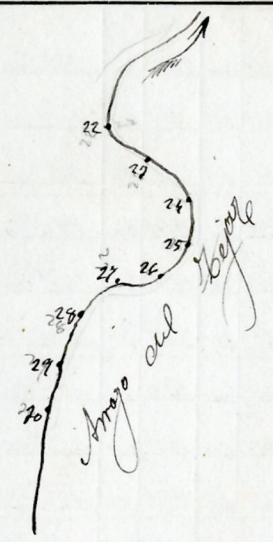 22
23
24
25
26
27
28
29
30
Arroyo del